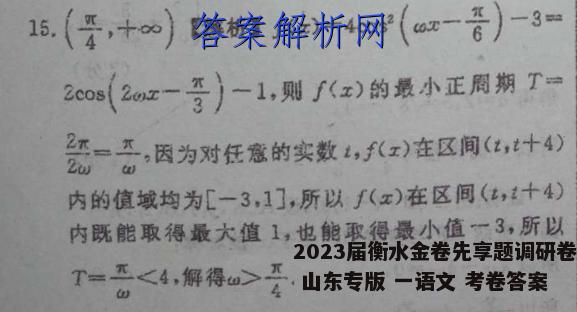 15. (π/4, +∞) 答案解析网 ²(ωx − π/6) − 3 =
2cos(2ωx − π/3) − 1, 则 f(x) 的最小正周期 T =
2π/2ω = π/ω。因为对任意的实数 t, f(x) 在区间 (t, t+4)
内的值域均为[−3,1], 所以 f(x) 在区间 (t, t+4)
内既能取得最大值 1, 也能取得最小值 −3, 所以
2023届衡水金卷先享题调研卷
T = π/ω < 4, 解得 ω > π/4.
山东专版 一语文 考卷答案